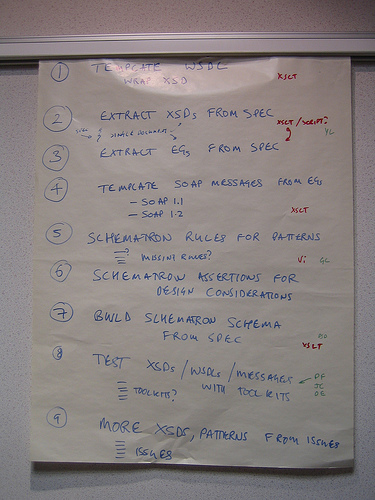 1 TEMPLATE WSDL
WRAP XSD XSLT
2 EXTRACT XSDs FROM SPEC XSLT/SCRIPT?
SINGLE DOCUMENT YL
3 EXTRACT EGs FROM SPEC
4 TEMPLATE SOAP MESSAGES FROM EGs
- SOAP 1.1
- SOAP 1.2 XSLT
5 SCHEMATRON RULES FOR PATTERNS
? MISSING RULES? Vi GL
6 SCHEMATRON ASSERTIONS FOR
DESIGN CONSIDERATIONS
7 BUILD SCHEMATRON SCHEMA
FROM SPEC XSLT
8 TEST XSDs / WSDLs / MESSAGES
WITH TOOLKITS
TOOLKITS?
PF
JC
DE
9 MORE XSDS, PATTERNS FROM ISSUES
ISSUES